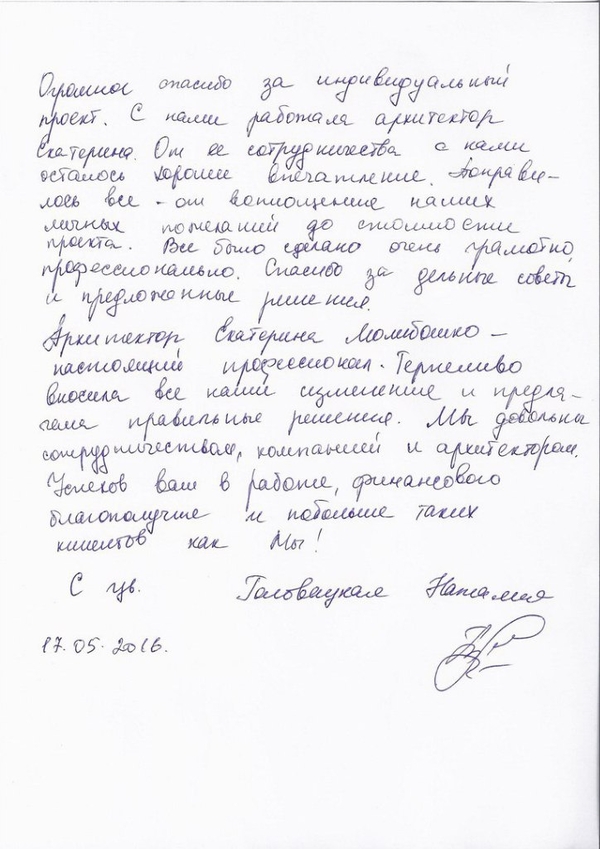 Огромное спасибо за индивидуальный
проект. С нами работала архитектор
Екатерина. От ее сотрудничества с нами
осталось хорошее впечатление. Понрави-
лось все - от воплощение наших
личных пожеланий до стоимости
проекта. Все было сделано очень грамотно,
профессионально. Спасибо за дельные советы
и предложенные решения.
Архитектор Екатерина Молибошко -
настоящий профессионал. Терпеливо
вносила все наши изменения и предла-
гала правильные решения. Мы довольны
сотрудничеством, компанией и архитектором.
Успехов вам в работе, финансового
благополучие и побольше таких
клиентов как Мы!
С ув. Головацкая Наталия
17.05.2016.